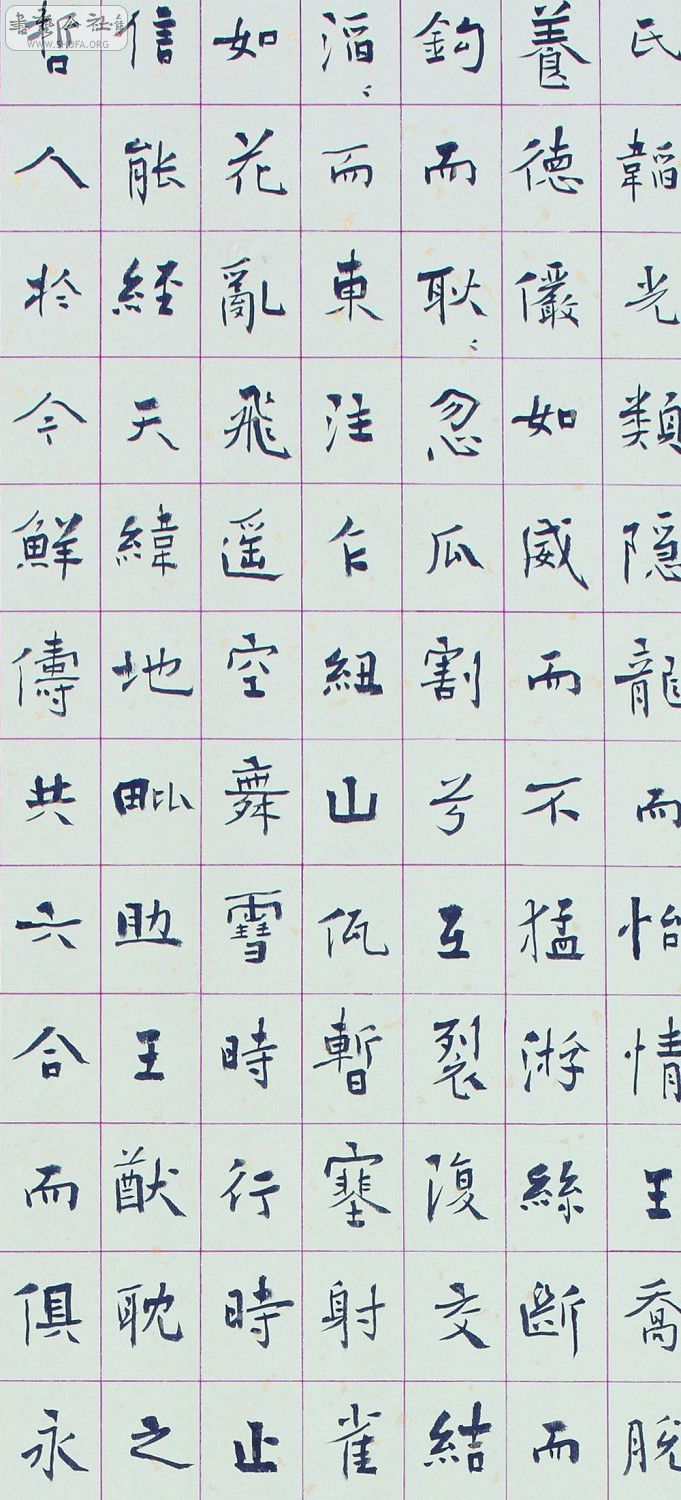 氏韜光類隱龍而怡情王喬脫
養德儼如威而不猛游絲斷而
鈎而耿〻忽瓜割兮互裂復交結
滔〻而東注乍紐山暫塞射雀
如花亂飛遥空舞雪時行時止
信能經天緯地毗助王猷耽之
哲人於今鮮儔共六合而俱永
書藝公社
www.SHUFA.ORG